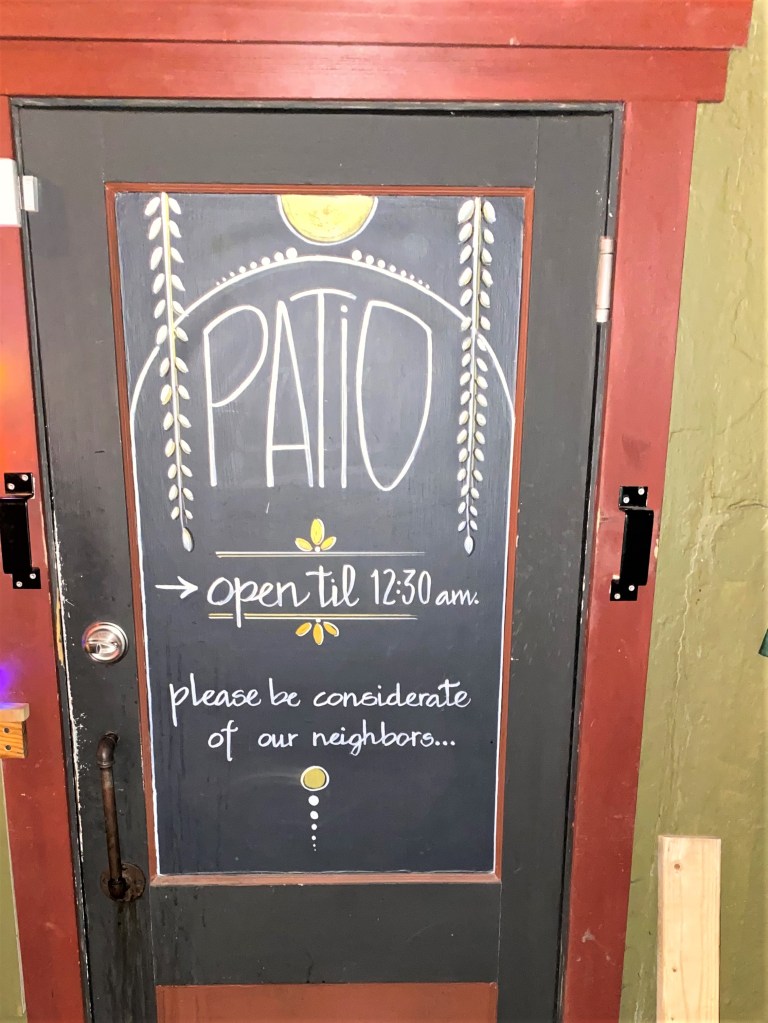 PATiO
→ open til 12:30 am.
please be considerate
of our neighbors...